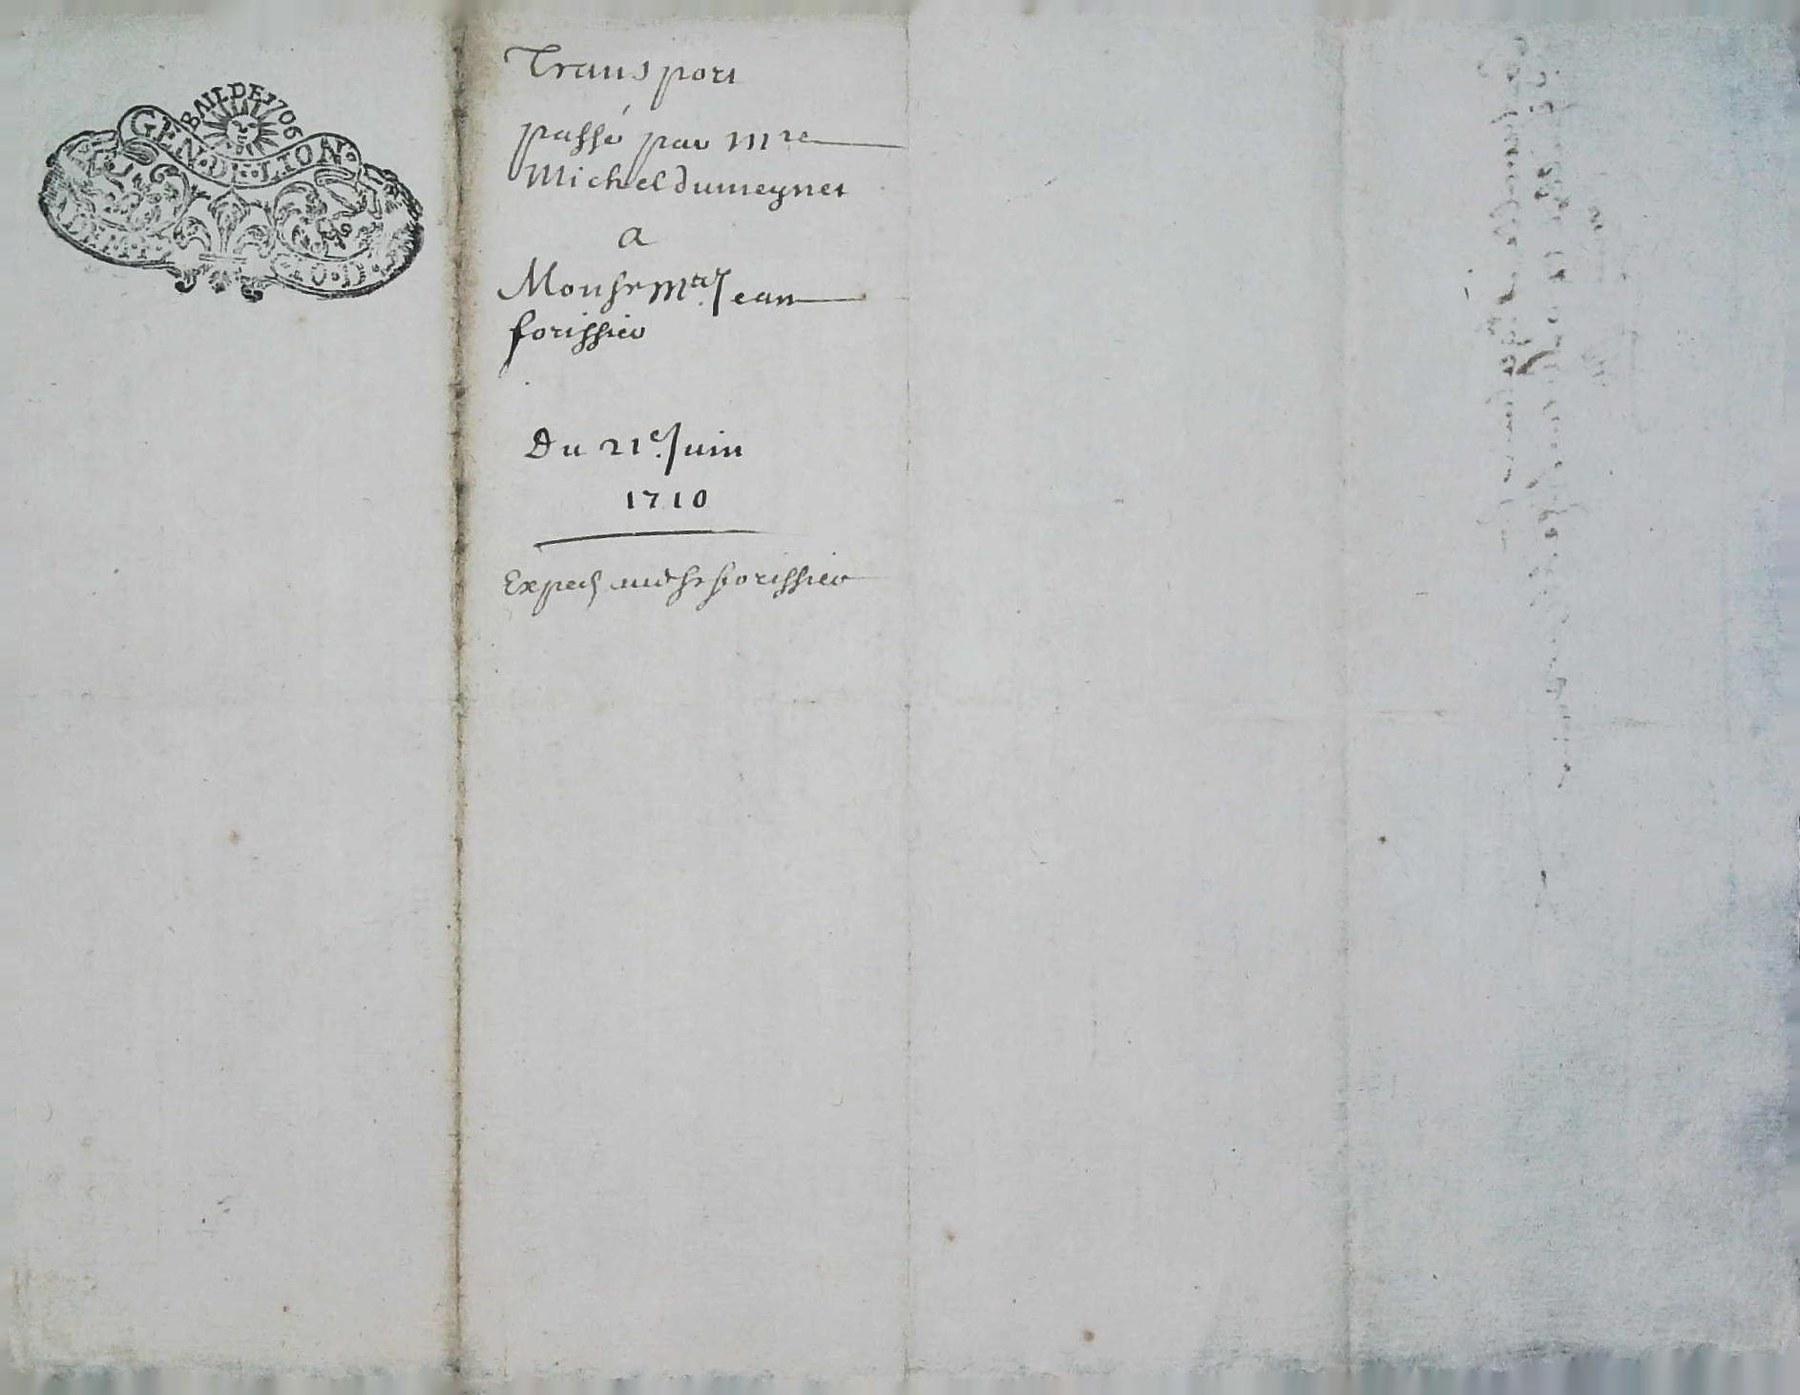 BAIL DE 1706
GEN·DE·LION·
Transport
passé par Mre
Michel dumeynet
a
Monsr Mtre Jean
forissier
Du 21e. Juin
1710
Exped audt sr forissier